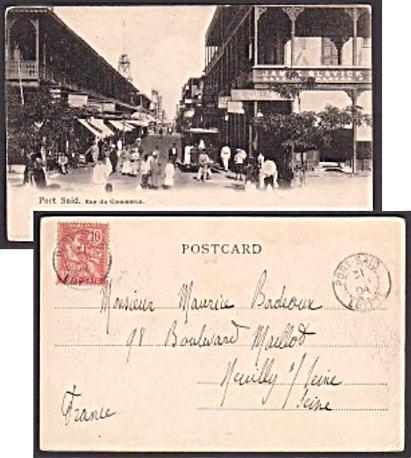 MAX & GLAVICK
Port Said. Rue du Commerce.
POSTCARD
10
PORT-SAID
31
04
Monsieur Maurice Badeoux
98 Boulevard Maillot
Neuilly s/ Seine
Seine
France